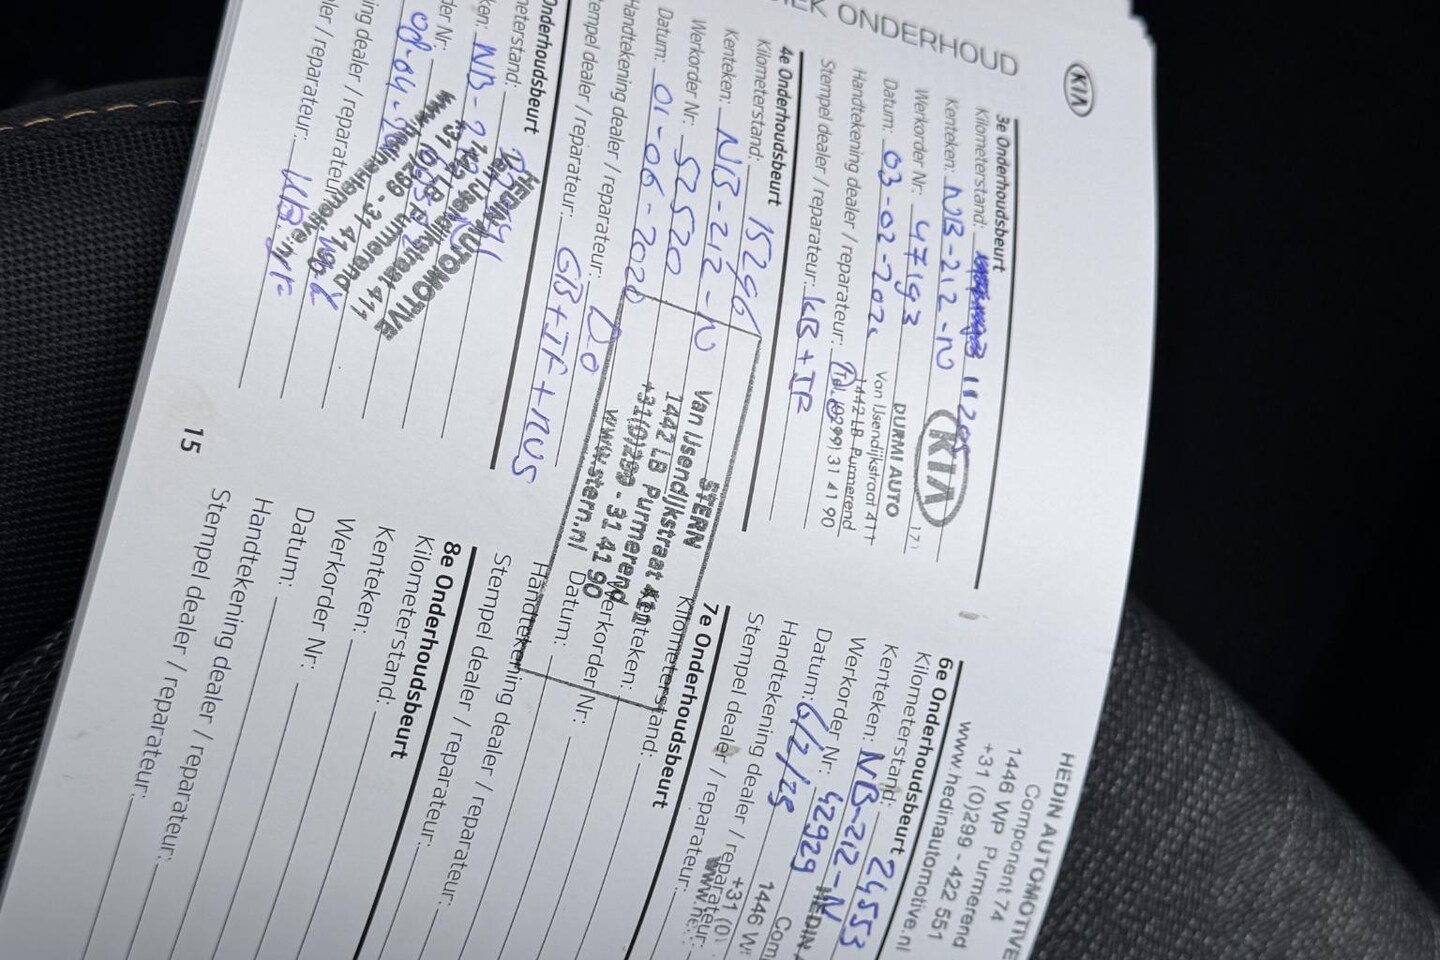 EK ONDERHOUD
KIA
3e Onderhoudsbeurt
Kilometerstand:
Kenteken: NB-212-N
Werkorder Nr: 47193
Datum: 03-02-2020
Handtekening dealer / reparateur:
Stempel dealer / reparateur: KB + IF
KIA
DURMI AUTO
Van IJsendijkstraat 411
1442 LB Purmerend
Tel. (0299) 31 41 90
4e Onderhoudsbeurt
Kilometerstand: 15296
Kenteken: NB-212-N
Werkorder Nr: 52520
Datum: 01-06-2020
Handtekening dealer / reparateur:
tempel dealer / reparateur: GB+IF+NWS
STERN
Van IJsendijkstraat 411
1442 LB Purmerend
+31(0)299 - 31 41 90
www.stern.nl
Onderhoudsbeurt
meterstand:
ken: NB-
der Nr:
08-04-
ing dealer / reparateur:
ler / reparateur:
HEDIN AUTOMOTIVE
Van IJsendijkstraat 411
1442 LB Purmerend
+31 (0)299 - 31 41 90
www.hedinautomotive.nl
HEDIN AUTOMOTIVE
Component 74
1446 WP Purmerend
+31 (0)299 - 422 551
www.hedinautomotive.nl
6e Onderhoudsbeurt
Kilometerstand: 24553
Kenteken: NB-212-N
Werkorder Nr: 42929
Datum:
Handtekening dealer / reparateur:
Stempel dealer / reparateur:
HEDIN A
Com
1446 W
+31 (0)
www.he
7e Onderhoudsbeurt
Kilometerstand:
Kenteken:
Werkorder Nr:
Datum:
Handtekening dealer / reparateur:
Stempel dealer / reparateur:
8e Onderhoudsbeurt
Kilometerstand:
Kenteken:
Werkorder Nr:
Datum:
Handtekening dealer / reparateur:
Stempel dealer / reparateur:
15